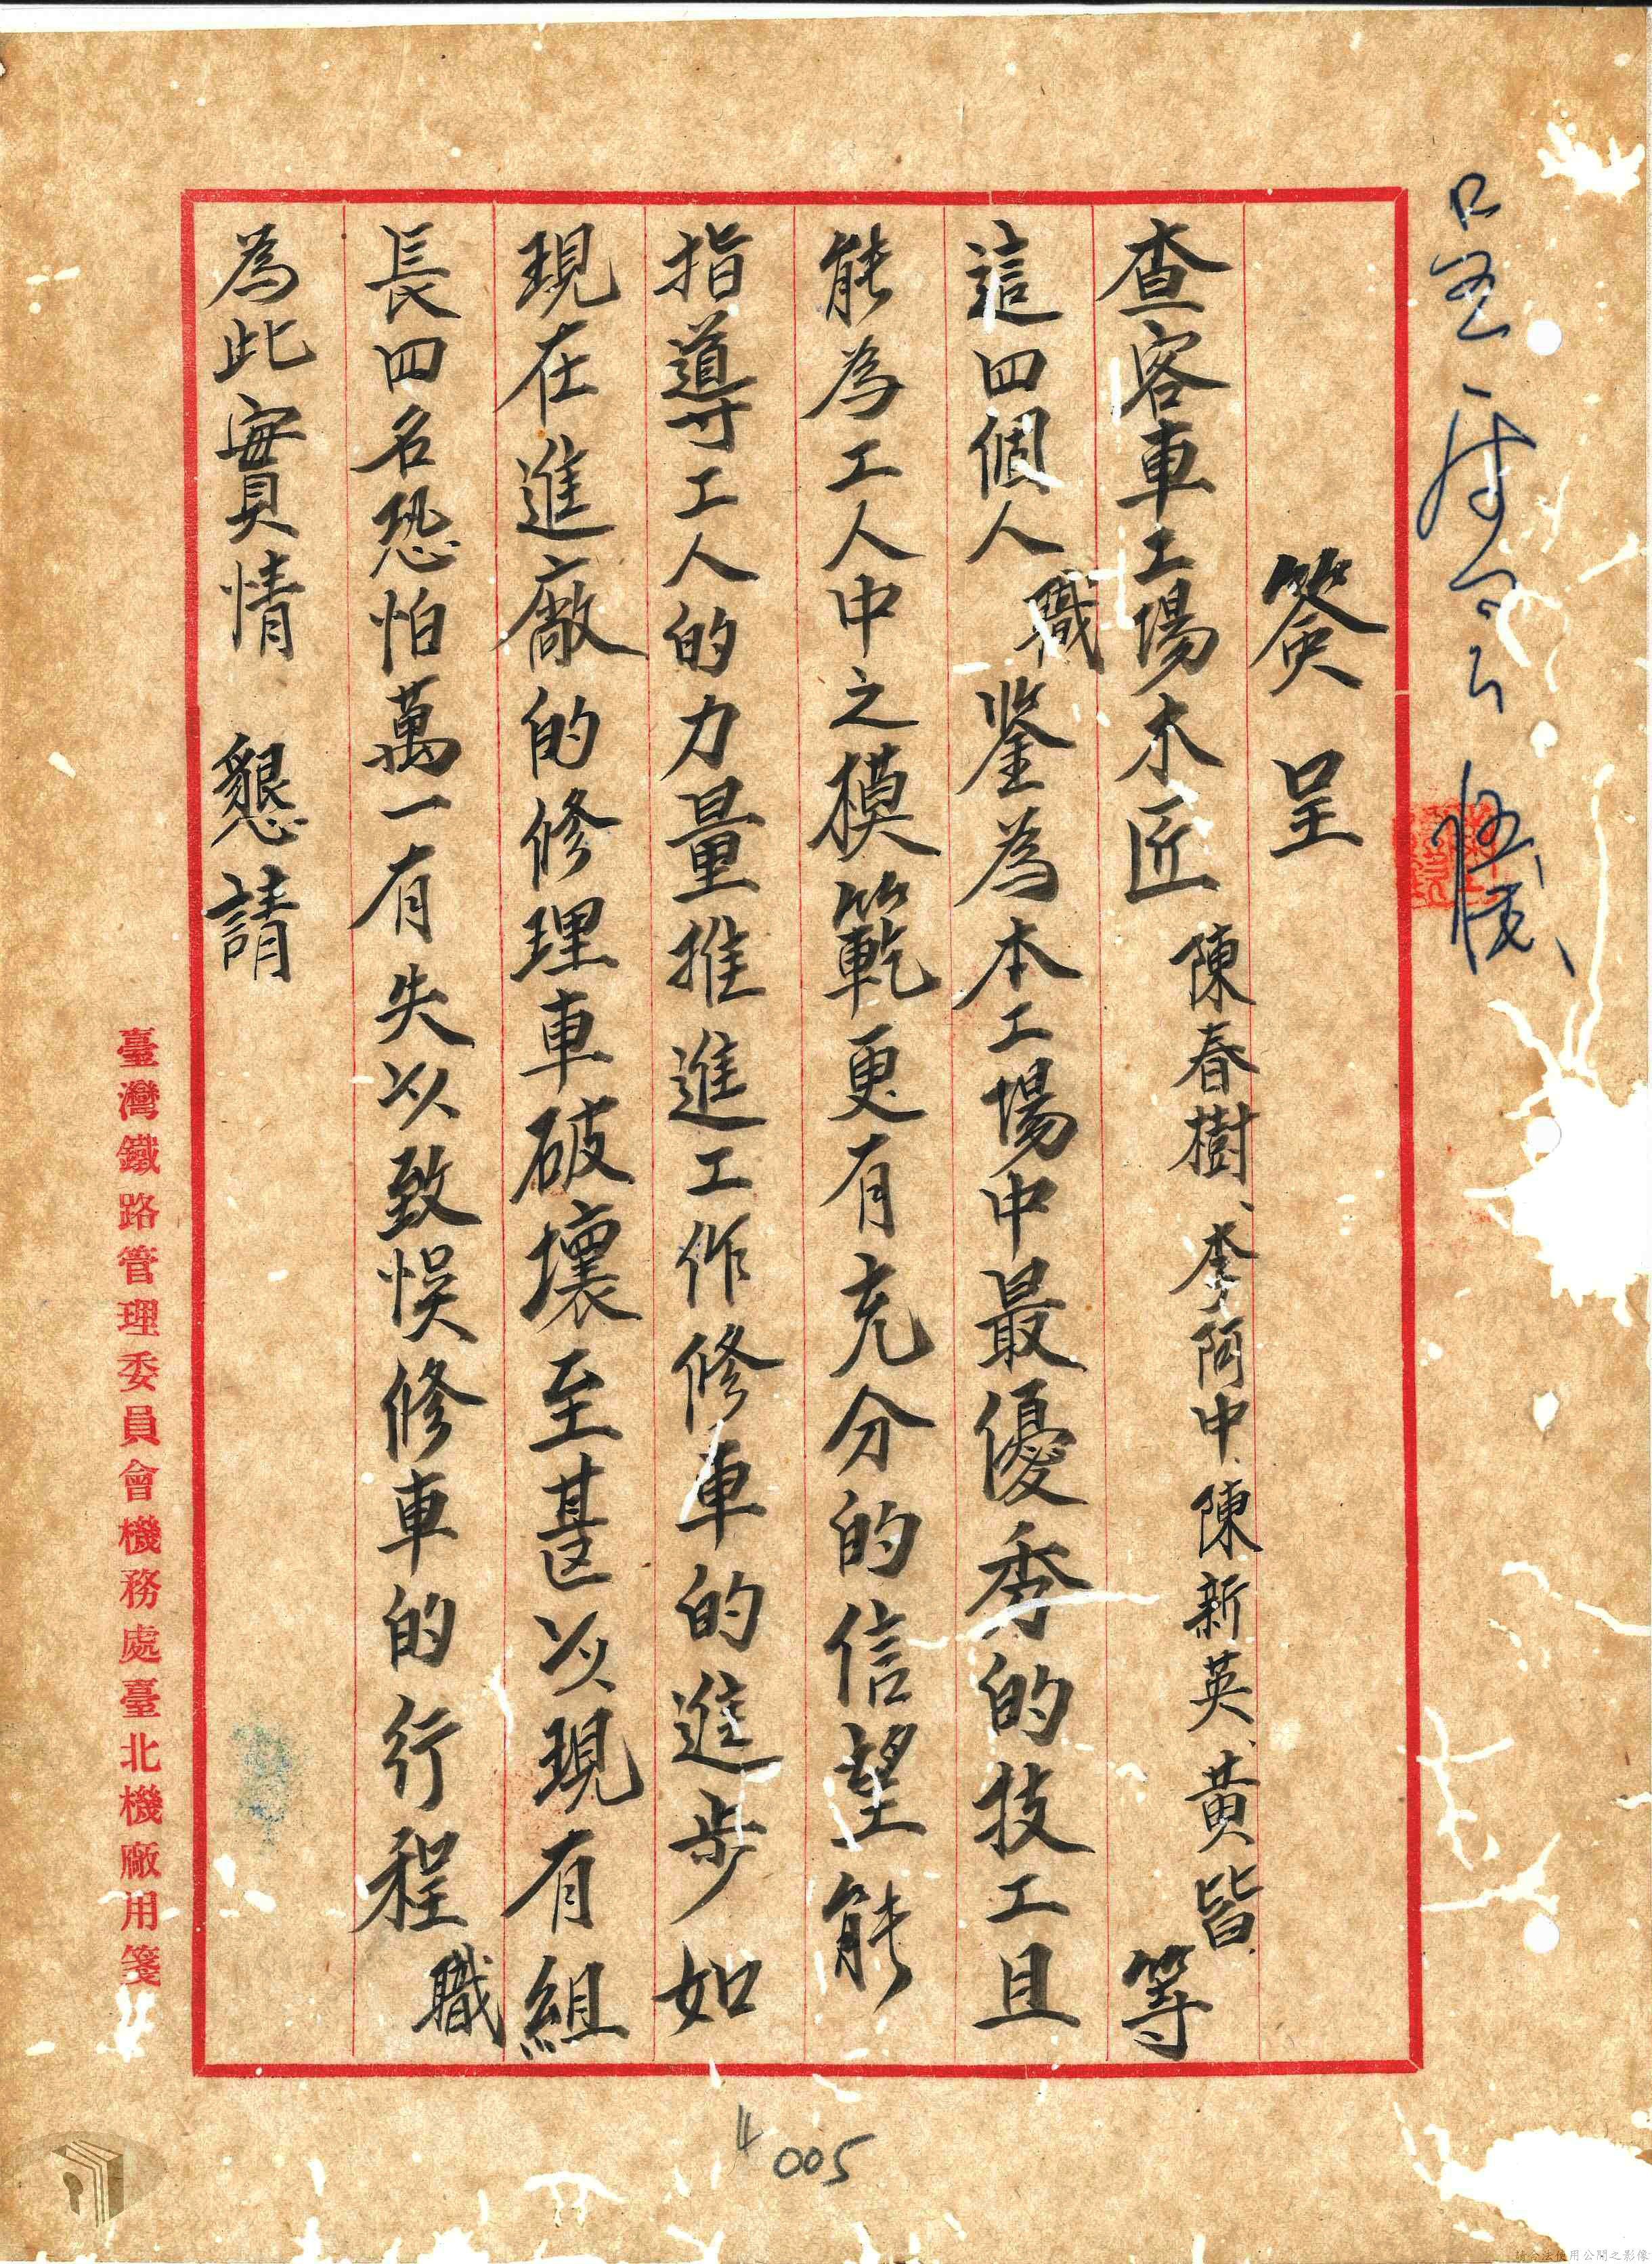 簽呈
查客車工場木匠陳春樹、李阿中、陳新英、黃皆等
這四個人職鑒為本工場中最優秀的技工且
能為工人中之模範更有充分的信望能
指導工人的力量推進工作修車的進步如
現在進廠的修理車破壞至甚以現有組
長四名恐怕萬一有失以致悞修車的行程職
為此實情 懇請
臺灣鐵路管理委員會機務處臺北機廠用箋
005